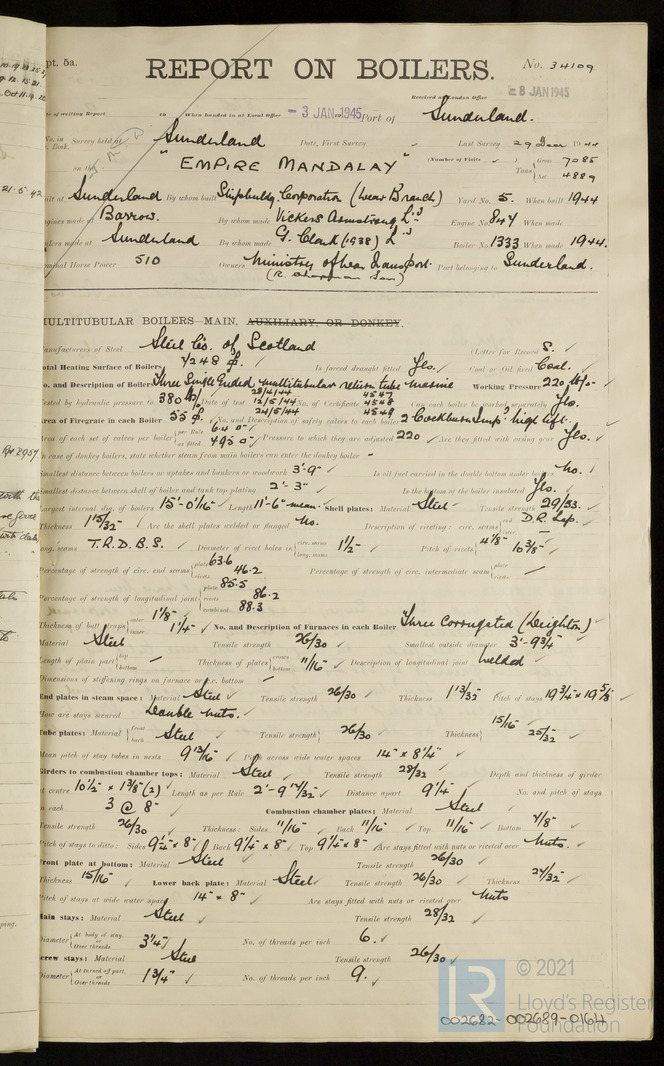 pt. 5a.
REPORT ON BOILERS.
No. 34109
Received at London Office
8 JAN 1945
of writing Report 19 When handed in at Local Office - 3 JAN 1945 Port of Sunderland.
No. in Book. Survey held at Sunderland Date, First Survey Last Survey 29 Decr 1944
on the "EMPIRE MANDALAY" (Number of Visits ) Tons 7085 4889
Built at Sunderland By whom built Shipbuildg. Corporation (Wear Branch) Yard No. 5. When built 1944
Engines made at Barrow. By whom made Vickers Armstrong Ltd Engine No. 847 When made
Boilers made at Sunderland By whom made G. Clark (1938) Ltd Boiler No. 1333 When made 1944.
Nominal Horse Power 510 Owners Ministry of War Transport. Port belonging to Sunderland.
MULTITUBULAR BOILERS MAIN, AUXILIARY, OR DONKEY.
Manufacturers of Steel Steel Co. of Scotland (Letter for Record S.)
Total Heating Surface of Boilers 7248 Is forced draught fitted Yes. Coal or Oil fired Coal.
No. and Description of Boilers Three Single Ended multitubular return tube marine Working Pressure 220 lbs
Tested by hydraulic pressure to 380 lbs Date of test 28/4/44 12/5/44 24/5/44 No. of Certificate 4547 4548 4549 Can each boiler be worked separately Yes.
Area of Firegrate in each Boiler 55 No. and Description of safety valves to each boiler 2 Cockburn Impd high lift.
Area of each set of valves per boiler per Rule as fitted Pressure to which they are adjusted 220 Are they fitted with easing gear Yes.
In case of donkey boilers, state whether steam from main boilers can enter the donkey boiler -
Smallest distance between boilers or uptakes and bunkers or woodwork 3'-9" Is oil fuel carried in the double bottom under boilers No.
Smallest distance between shell of boiler and tank top plating 2'-3" Is the bottom of the boiler insulated Yes.
Largest internal dia. of boilers 15'-0 1/16" Length 11'-6" mean. Shell plates: Material Steel Tensile strength 29/33.
Thickness 1 15/32" Are the shell plates welded or flanged No. Description of riveting: circ. seams end D.R. Lap.
long. seams T.R.D.B.S. Diameter of rivet holes in circ. seams long. seams 1 1/2" Pitch of rivets 4 1/8" 10 3/8"
Percentage of strength of circ. end seams plate 63.6 rivets 46.2 Percentage of strength of circ. intermediate seam plate rivets -
Percentage of strength of longitudinal joint plate 85.5 rivets 86.2 combined 88.3
Thickness of butt straps outer 1 1/8" inner 1 1/4" No. and Description of Furnaces in each Boiler Three Corrugated (Deighton)
Material Steel Tensile strength 26/30 Smallest outside diameter 3'-9 3/4"
Length of plain part top bottom - Thickness of plates crown bottom 11/16" Description of longitudinal joint welded
Dimensions of stiffening rings on furnace or c.c. bottom -
End plates in steam space: Material Steel Tensile strength 26/30 Thickness 1 13/32" Pitch of stays 19 3/4" x 19 5/8"
How are stays secured Double Nuts.
Tube plates: Material front back Steel Tensile strength 26/30 Thickness 15/16" 25/32"
Mean pitch of stay tubes in nests 9 13/16" Pitch across wide water spaces 14" x 8 1/4"
Girders to combustion chamber tops: Material Steel Tensile strength 28/32 Depth and thickness of girder
at centre 10 1/2" x 1 3/8" (2) Length as per Rule 2'-9 17/32" Distance apart 9 1/4" No. and pitch of stays
in each 3 @ 8" Combustion chamber plates: Material Steel
Tensile strength 26/30 Thickness: Sides 11/16" Back 11/16" Top 11/16" Bottom 7/8"
Pitch of stays to ditto: Sides 9 1/4" x 8" Back 9 1/4" x 8" Top 9 1/4" x 8" Are stays fitted with nuts or riveted over Nuts.
Front plate at bottom: Material Steel Tensile strength 26/30
Thickness 15/16" Lower back plate: Material Steel Tensile strength 26/30 Thickness 27/32"
Pitch of stays at wide water space 14" x 8" Are stays fitted with nuts or riveted over Nuts
Main stays: Material Steel Tensile strength 28/32
Diameter At body of stay, or Over threads 3 1/4" No. of threads per inch 6.
Screw stays: Material Steel Tensile strength 26/30
Diameter At turned off part, or Over threads 1 3/4" No. of threads per inch 9.
© 2021
Lloyd's Register
Foundation
002682-002689-0164